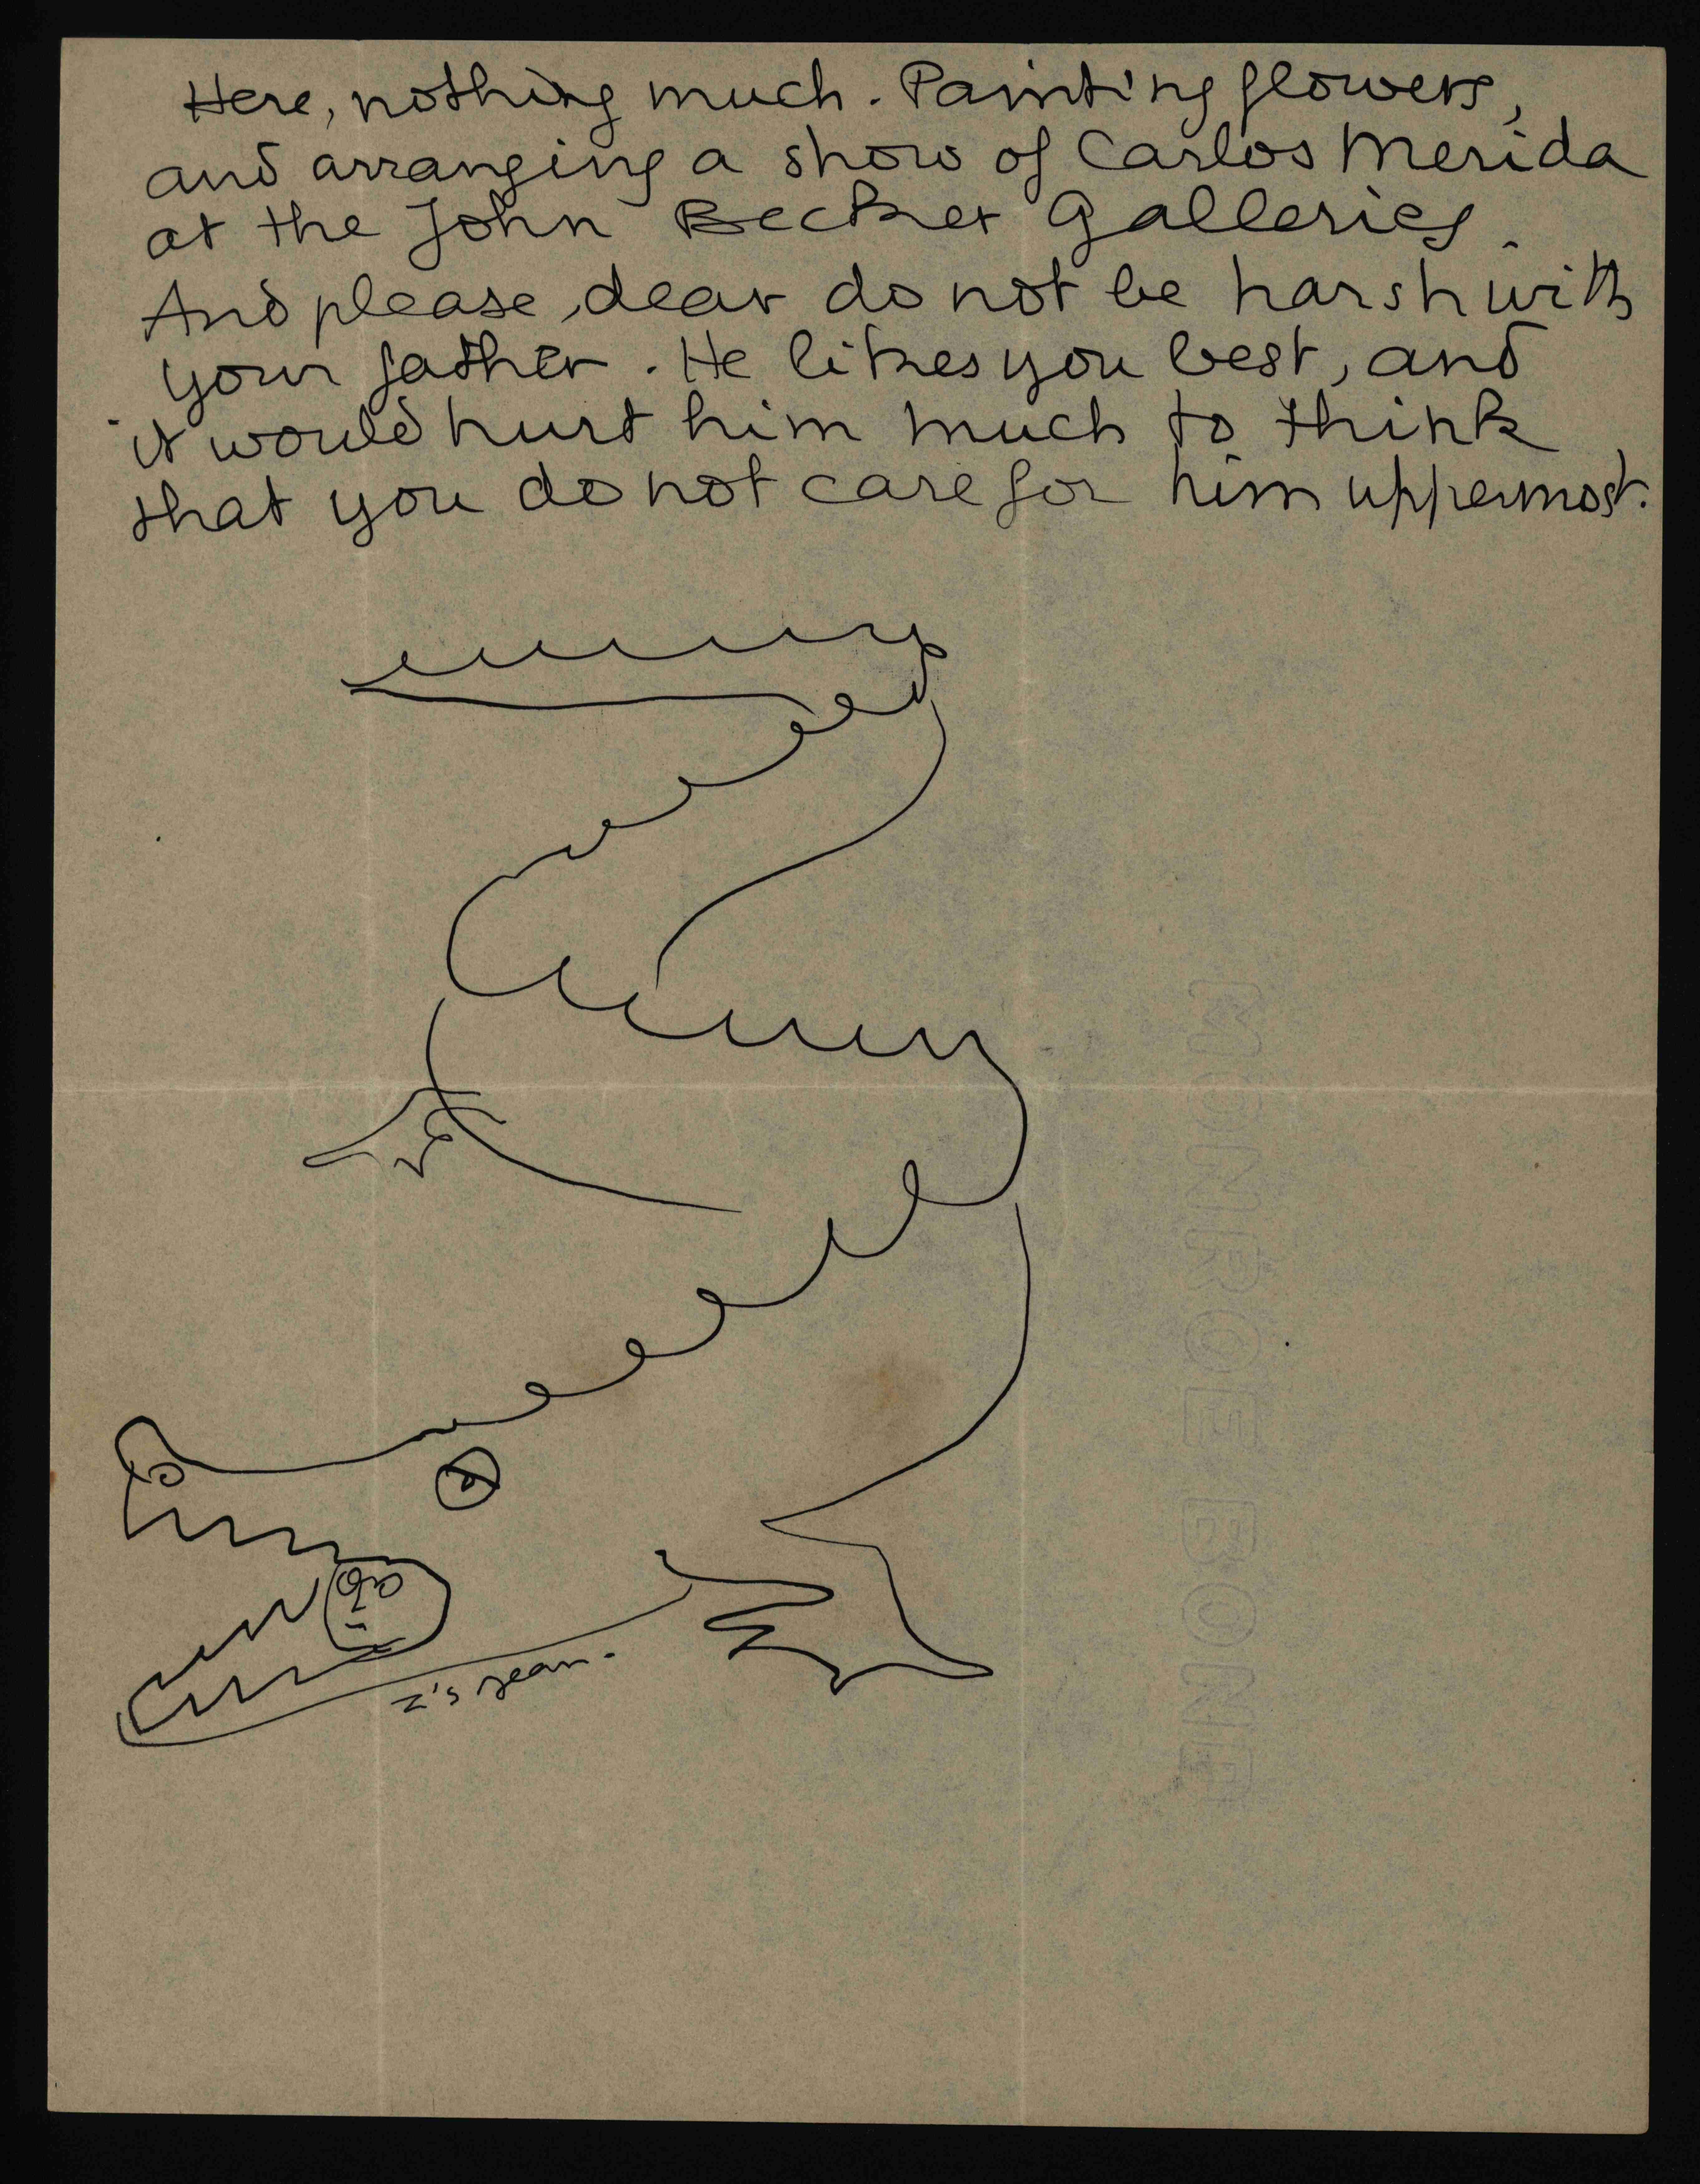 Here, nothing much. Painting flowers,
and arranging a show of Carlos Merida
at the John Becker Galleries.
And please, dear do not be harsh with
your father. He likes you best, and
it would hurt him much to think
that you do not care for him uppermost.
Z's Jean.
MONROE BOND